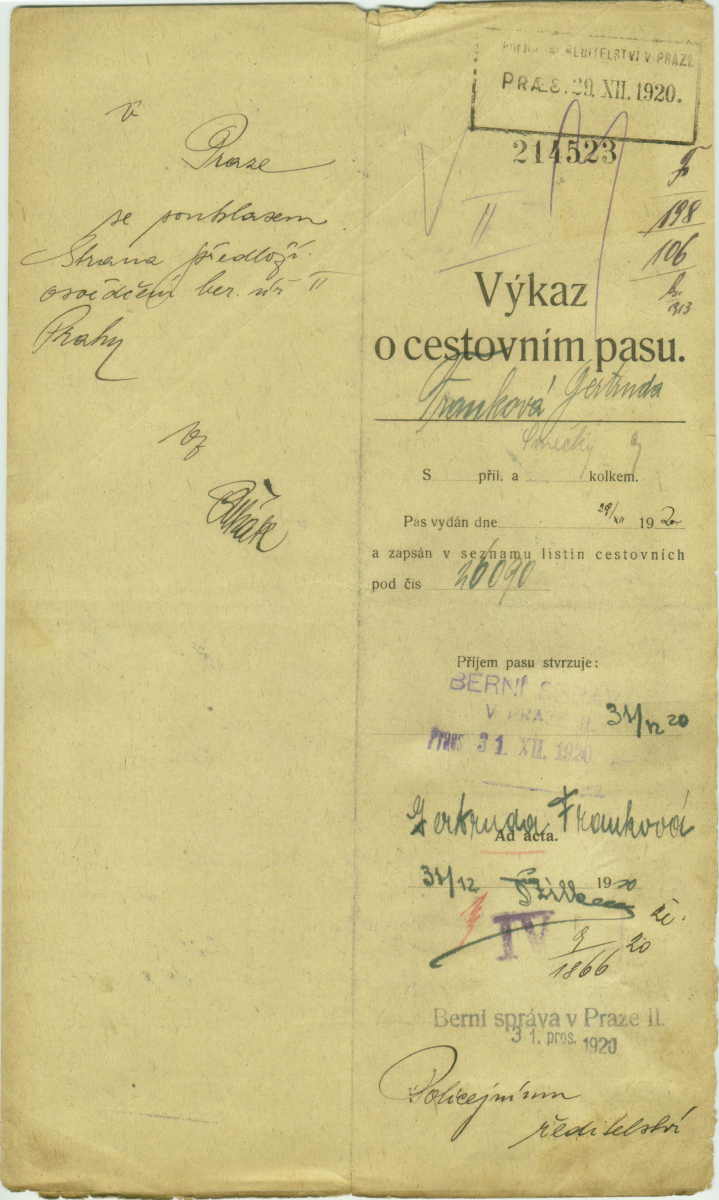 v
Praze
se souhlasem
Strana předloží
osvědčení ber. úř. II
Prahy
ŘEDITELSTVÍ V PRAZE
PRÆS. 29. XII. 1920.
214523
II
198
106
313
Výkaz
o cestovním pasu.
Franková Gertruda
S příl. a kolkem.
Pas vydán dne 29/XII 1920
a zapsán v seznamu listin cestovních
pod čís 26090
Příjem pasu stvrzuje:
BERNÍ
V PRAZE II.
31/12 20
Praes 31. XII. 1920
Gertruda Franková
Ad acta.
31/12 1920
IV
1866 20
Berní správa v Praze II.
31. pros. 1920
Policejnímu
ředitelství